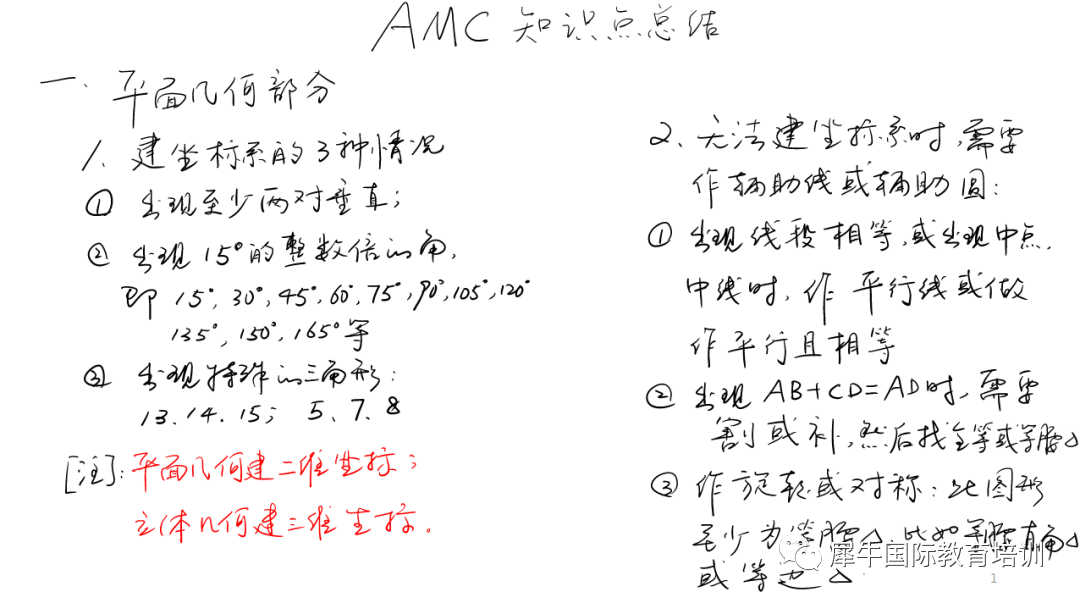 AMC 知识点总结
一、平面几何部分
1、建坐标系的3种情况
① 出现至少两对垂直;
② 出现15°的整数倍的角,
即 15°, 30°, 45°, 60°, 75°, 90°, 105°, 120°
135°, 150°, 165°等
③ 出现特殊的三角形:
13. 14. 15; 5、7、8
[注]: 平面几何建二维坐标;
立体几何建三维坐标.
2、无法建坐标系时,需要
作辅助线或辅助圆:
① 出现线段相等,或出现中点.
中线时,作平行线或做
作平行且相等
② 出现 AB+CD=AD时,需要
割或补,然后找全等或等腰△
③ 作旋转或对称:此图形
至少为等腰△, 比如等腰直角△
或等边△
犀牛国际教育培训
1